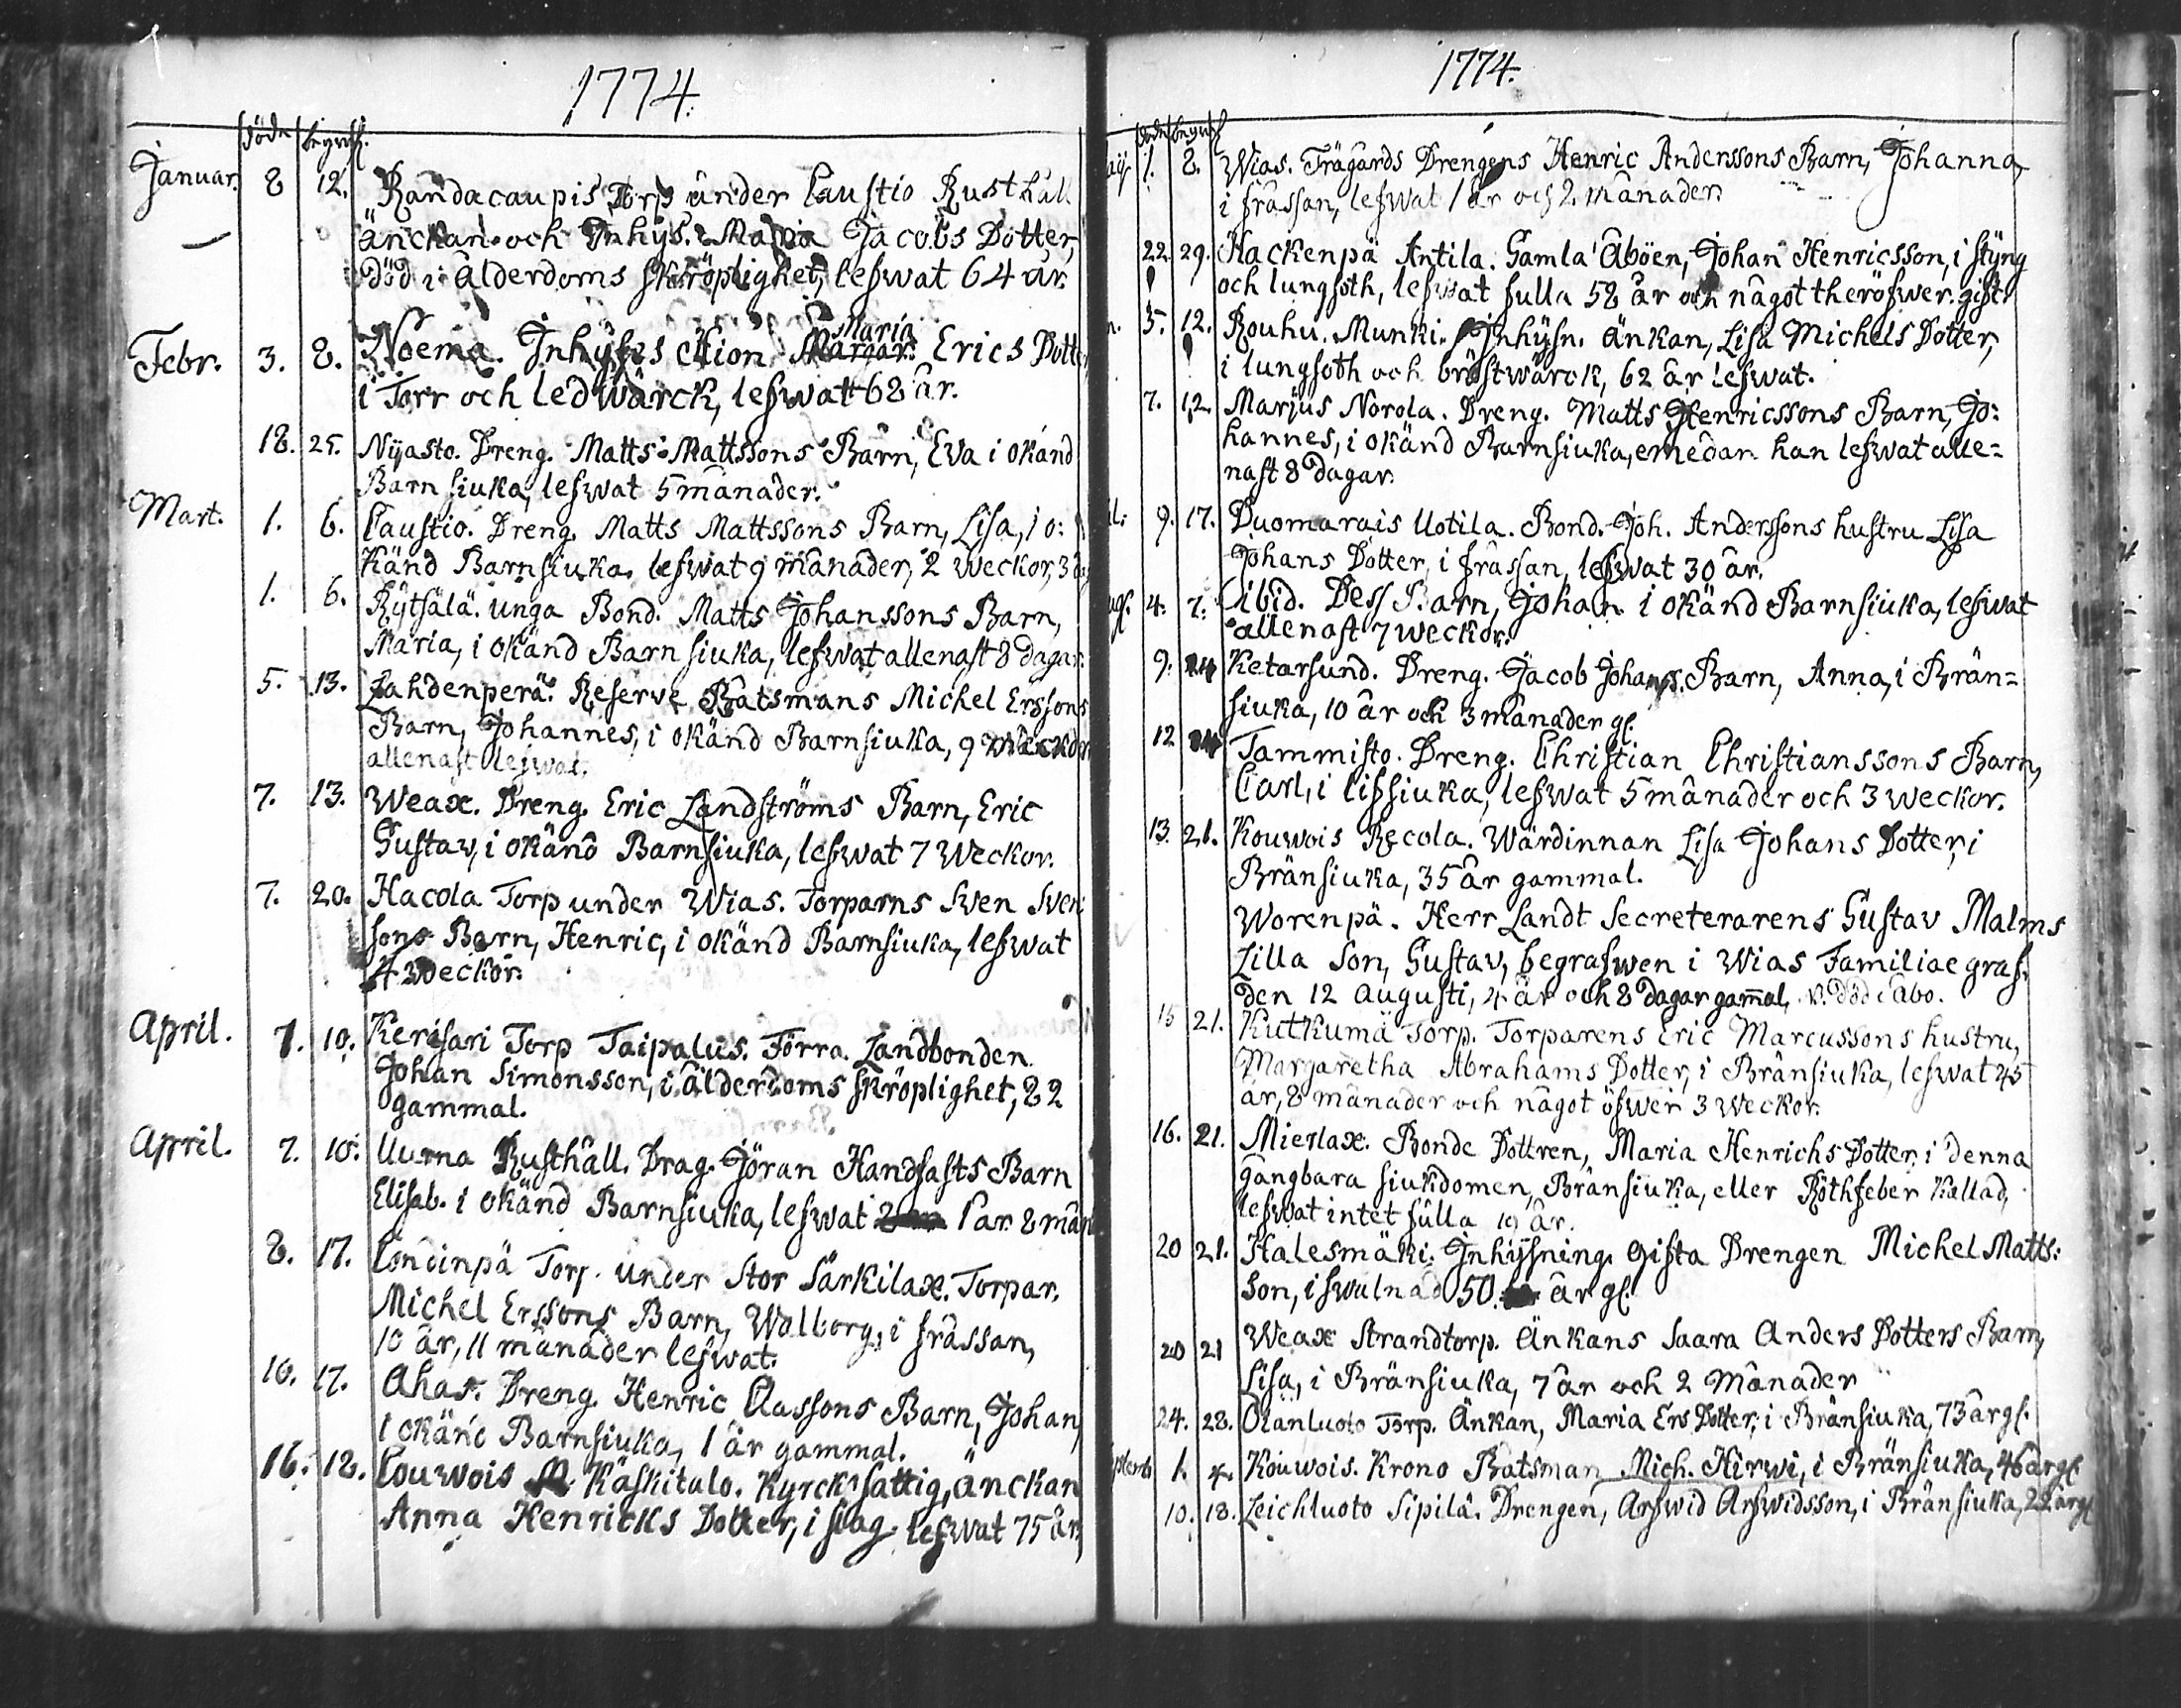 1774.
döde begrafs.
Januar. 8 12. Randacaupis Torp under Caustio Rusthåll
änckan och Inhys. Maria Jacobs Dotter,
död i ålderdoms skröplighet, lefwat 64 år.
Febr. 3. 8. Noema. Inhyses Maria Erics Dotter
i Torr och ledwärck, lefwatt 68 år.
18. 25. Nyasto. Dreng. Matts Mattssons Barn, Eva i okänd
Barnsiuka, lefwat 5 månader.
Mart. 1. 6. Caustio. Dreng. Matts Mattssons Barn, Lisa, i o:
känd Barnsiuka. lefwat 9 månader, 2 weckor, 3
1. 6. Rytsälä. unga Bond. Matts Johanssons Barn,
Maria, i okänd Barnsiuka, lefwat allenast 8 dagar.
5. 13. Lahdenperä. Reserve Båtsmans Michel Erssons
Barn, Johannes, i okänd Barnsiuka, 9 weckor
allenast lefwat.
7. 13. Weax. Dreng. Eric Landströms Barn, Eric
Gustav, i okänd Barnsiuka, lefwat 7 weckor.
7. 20. Hacola Torp under Wias. Torparns Sven Sven
sons Barn, Henric, i okänd Barnsiuka, lefwat
4 weckor.
April. 7. 10. Kerisari Torp Taipalus. Förra Landbonden
Johan Simonsson, i ålderdoms skröplighet, 82
gammal.
April. 7. 10. Uurna Rusthåll. Drag. Jöran Handfasts Barn
Elisab. i okänd Barnsiuka, lefwat 1 år 8 mån
8. 17. Condinpä Torp. under Stor Särkilax. Torpar.
Michel Erssons Barn, Walborg, i fråssan,
10 år, 11 månader lefwat.
10. 17. Ahas. Dreng. Henric Classons Barn, Johan,
i okänd Barnsiuka, 1 år gammal.
16. 18. Couwois Käskitalo. Kyrck fattig, änckan
Anna Henricks Dotter, i slag lefwat 75 år,
1774.
döde begrafs
1. 8. Wias. Trägårds Drengens Henric Anderssons Barn, Johanna,
i fråssan, lefwat 1 år och 2 månader.
22. 29. Hackenpä Antila. Gamla Åboen, Johan Henricsson, i styng
och lungsoth, lefwat fulla 58 år och något theröfwer. gift.
5. 12. Rouhu. Munki. Inhysn. Änkan, Lisa Michels Dotter,
i lungsoth och bröstwärck, 62 år lefwat.
7. 12. Marjus Norola. Dreng. Matts Henricssons Barn, Jo:
hannes, i okänd Barnsiuka, emedan han lefwat alle=
nast 8 dagar.
9. 17. Duomarais Uotila. Bond. Joh. Anderssons hustru Lisa
Johans Dotter, i fråssan, lefwat 30 år.
4. 7. ibid. Dess Barn, Johan i okänd Barnsiuka, lefwat
allenast 7 weckor.
9. 14 Ketarsund. Dreng. Jacob Johanss. Barn, Anna, i Brän=
siuka, 10 år och 3 månader gl.
12 14 Tammisto. Dreng. Christian Christianssons Barn,
Carl, i lissiuka, lefwat 5 månader och 3 weckor.
13. 21. Kouwois Recola. Wärdinnan Lisa Johans Dotter, i
Bränsiuka, 35 år gammal.
Worenpä. Herr Landt Secreterarens Gustav Malms
Lilla Son, Gustav, begrafwen i Wias Familiae graf.
den 12 augusti, 4 år och 8 dagar gammal, död i Åbo.
15 21. Kutkumä Torp. Torparens Eric Marcussons hustru,
Margaretha Abrahams Dotter, i Bränsiuka, lefwat 45
år, 8 månader och något öfwer 3 weckor.
16. 21. Mierlax. Bonde Dottren, Maria Henrichs Dotter, i denna
gångbara siukdomen, Bränsiuka, eller Röthfeber kallad,
lefwat intet fulla 19 år.
20 21. Halesmäki. Inhysning. gifta Drengen Michel Matts:
son, i swulnad 50 år gl.
20 21 Weax Strandtorp. Änkans Saara Anders Dotters Barn,
Lisa, i Bränsiuka, 7 år och 2 Månader
24. 28. Olänluoto Torp. Änkan, Maria Ers Dotter, i Bränsiuka, 73 år gl.
1. 4. Kouwois. Krono Båtsman Mich. Hirwi, i Bränsiuka, 46 år gl.
10. 18. Leichluoto Sipilä. Drengen, Arfwid Arfwidsson, i Bränsiuka, 22 år gl